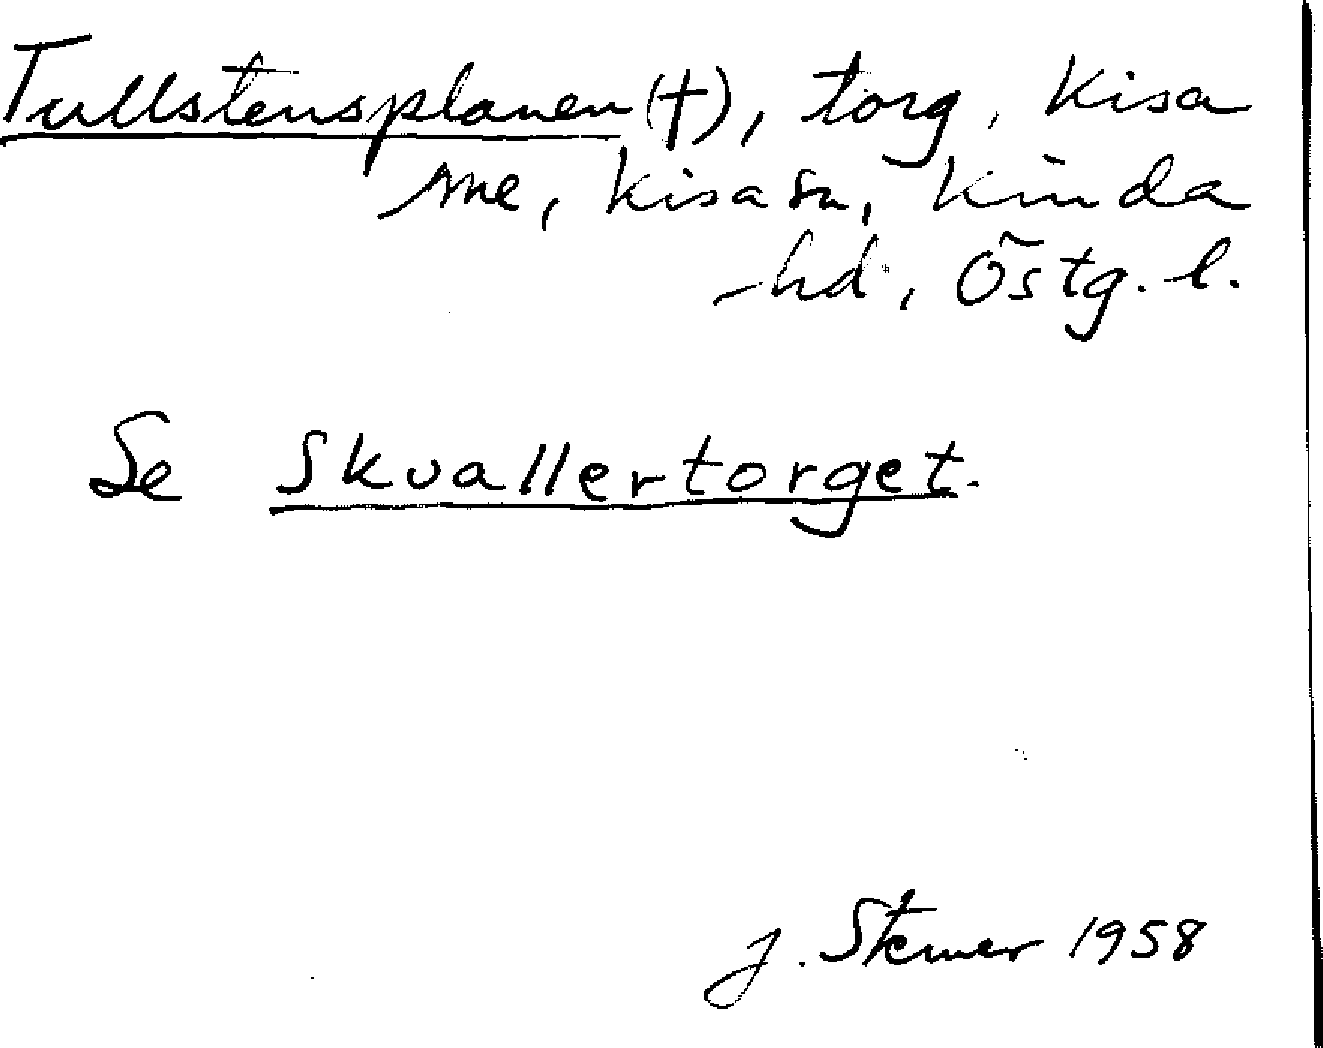 Tullstensplanen (†), torg, Kisa
sne, Kisa sn, Kinda
hd, Östg. l.
Se Skvallertorget.
J. Stemer 1958